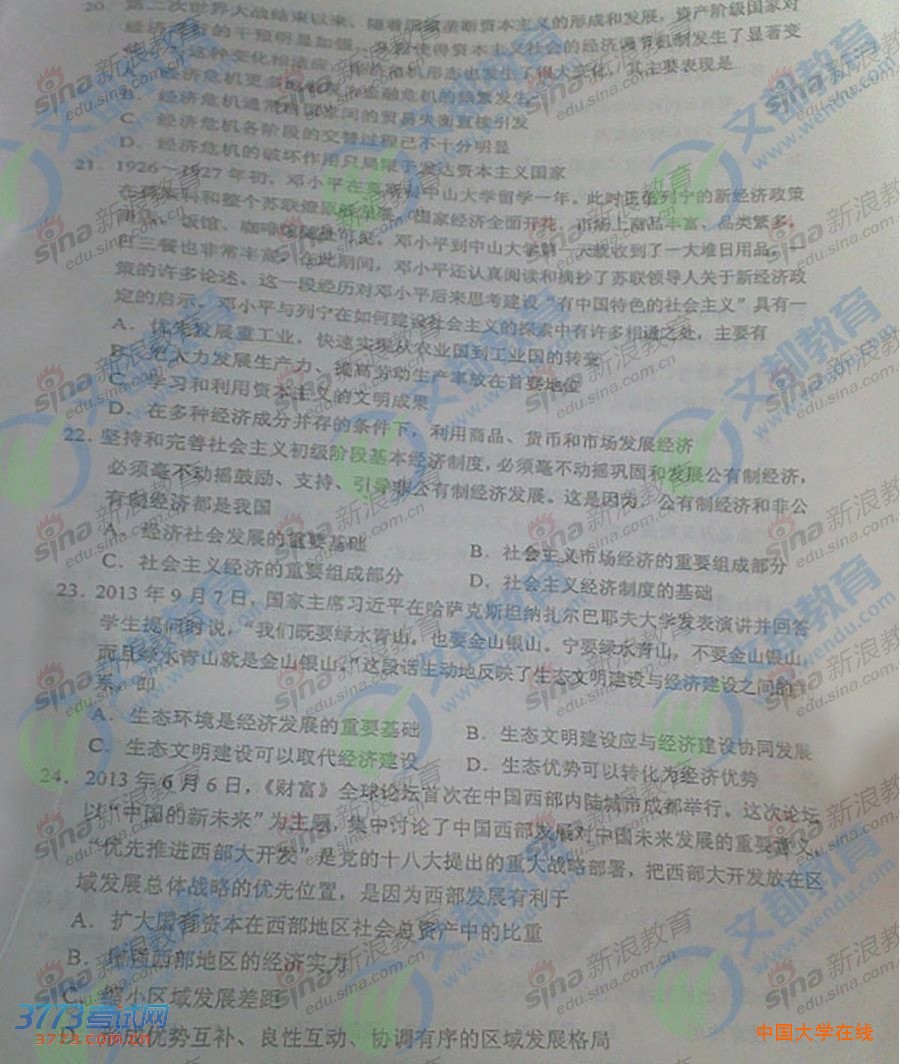 20. 第二次世界大战结束以来、随着国家垄断资本主义的形成和发展，资产阶级国家对
经济的干预明显加强，从而使得资本主义社会的经济调节机制发生了显著变
这种变化相适应，经济危机形态也发生了很大变化，其主要表现是
A. 经济危机更 金融危机的频繁发生
B. 经济危机通常 国家间的贸易失衡直接引发
C. 经济危机各阶段的交替过程已不十分明显
D. 经济危机的破坏作用只局限于发达资本主义国家
21. 1926－1927年初、邓小平在莫斯科中山大学留学一年。此时正在列宁的新经济政策
在莫斯科和整个苏联 国家经济全面开花，市场上商品丰富、品类繁多，
商店、饭馆、咖啡 邓小平到中山大学第一天就收到了一大堆日用品，一
日三餐也非常丰富。在此期间，邓小平还认真阅读和摘抄了苏联领导人关于新经济政
策的许多论述。这一段经历对邓小平后来思考建设“有中国特色的社会主义”具有一
定的启示，邓小平与列宁在如何建设社会主义的探索中有许多相通之处，主要有
A. 优先发展重工业，快速实现从农业国到工业国的转变
B. 把大力发展生产力、提高劳动生产率放在首要地位
C. 学习和利用资本主义的文明成果
D. 在多种经济成分并存的条件下，利用商品、货币和市场发展经济
22. 坚持和完善社会主义初级阶段基本经济制度，必须毫不动摇巩固和发展公有制经济，
必须毫不动摇鼓励、支持、引导非公有制经济发展。这是因为，公有制经济和非公
有制经济都是我国
A. 经济社会发展的重要基础
B. 社会主义市场经济的重要组成部分
C. 社会主义经济的重要组成部分
D. 社会主义经济制度的基础
23. 2013年9月7日，国家主席习近平在哈萨克斯坦纳扎尔巴耶夫大学发表演讲并回答
学生提问时说，“我们既要绿水青山，也要金山银山。宁要绿水青山，不要金山银山，
而且绿水青山就是金山银山。”这段话生动地反映了生态文明建设与经济建设之间的
系。即
A. 生态环境是经济发展的重要基础
B. 生态文明建设应与经济建设协同发展
C. 生态文明建设可以取代经济建设
D. 生态优势可以转化为经济优势
24. 2013年6月6日，《财富》全球论坛首次在中国西部内陆城市成都举行。这次论坛
以“中国的新未来”为主题，集中讨论了中国西部发展对中国未来发展的重要意义。
“优先推进西部大开发”是党的十八大提出的重大战略部署，把西部大开发放在区
域发展总体战略的优先位置，是因为西部发展有利于
A. 扩大国有资本在西部地区社会总资产中的比重
B. 增强西部地区的经济实力
C. 缩小区域发展差距
D. 形成优势互补、良性互动、协调有序的区域发展格局
3773考试网
中国大学在线
sina 新浪教育
edu.sina.com.cn
文都教育
www.wendu.com